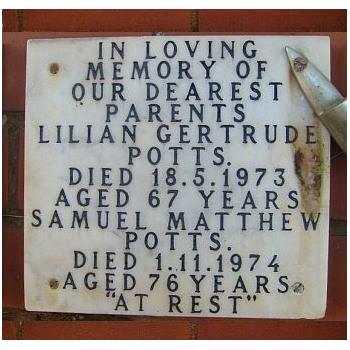 IN LOVING
MEMORY OF
OUR DEAREST
PARENTS
LILIAN GERTRUDE
POTTS.
DIED 18.5.1973
AGED 67 YEARS
SAMUEL MATTHEW
POTTS.
DIED 1.11.1974
AGED 76 YEARS
"AT REST"